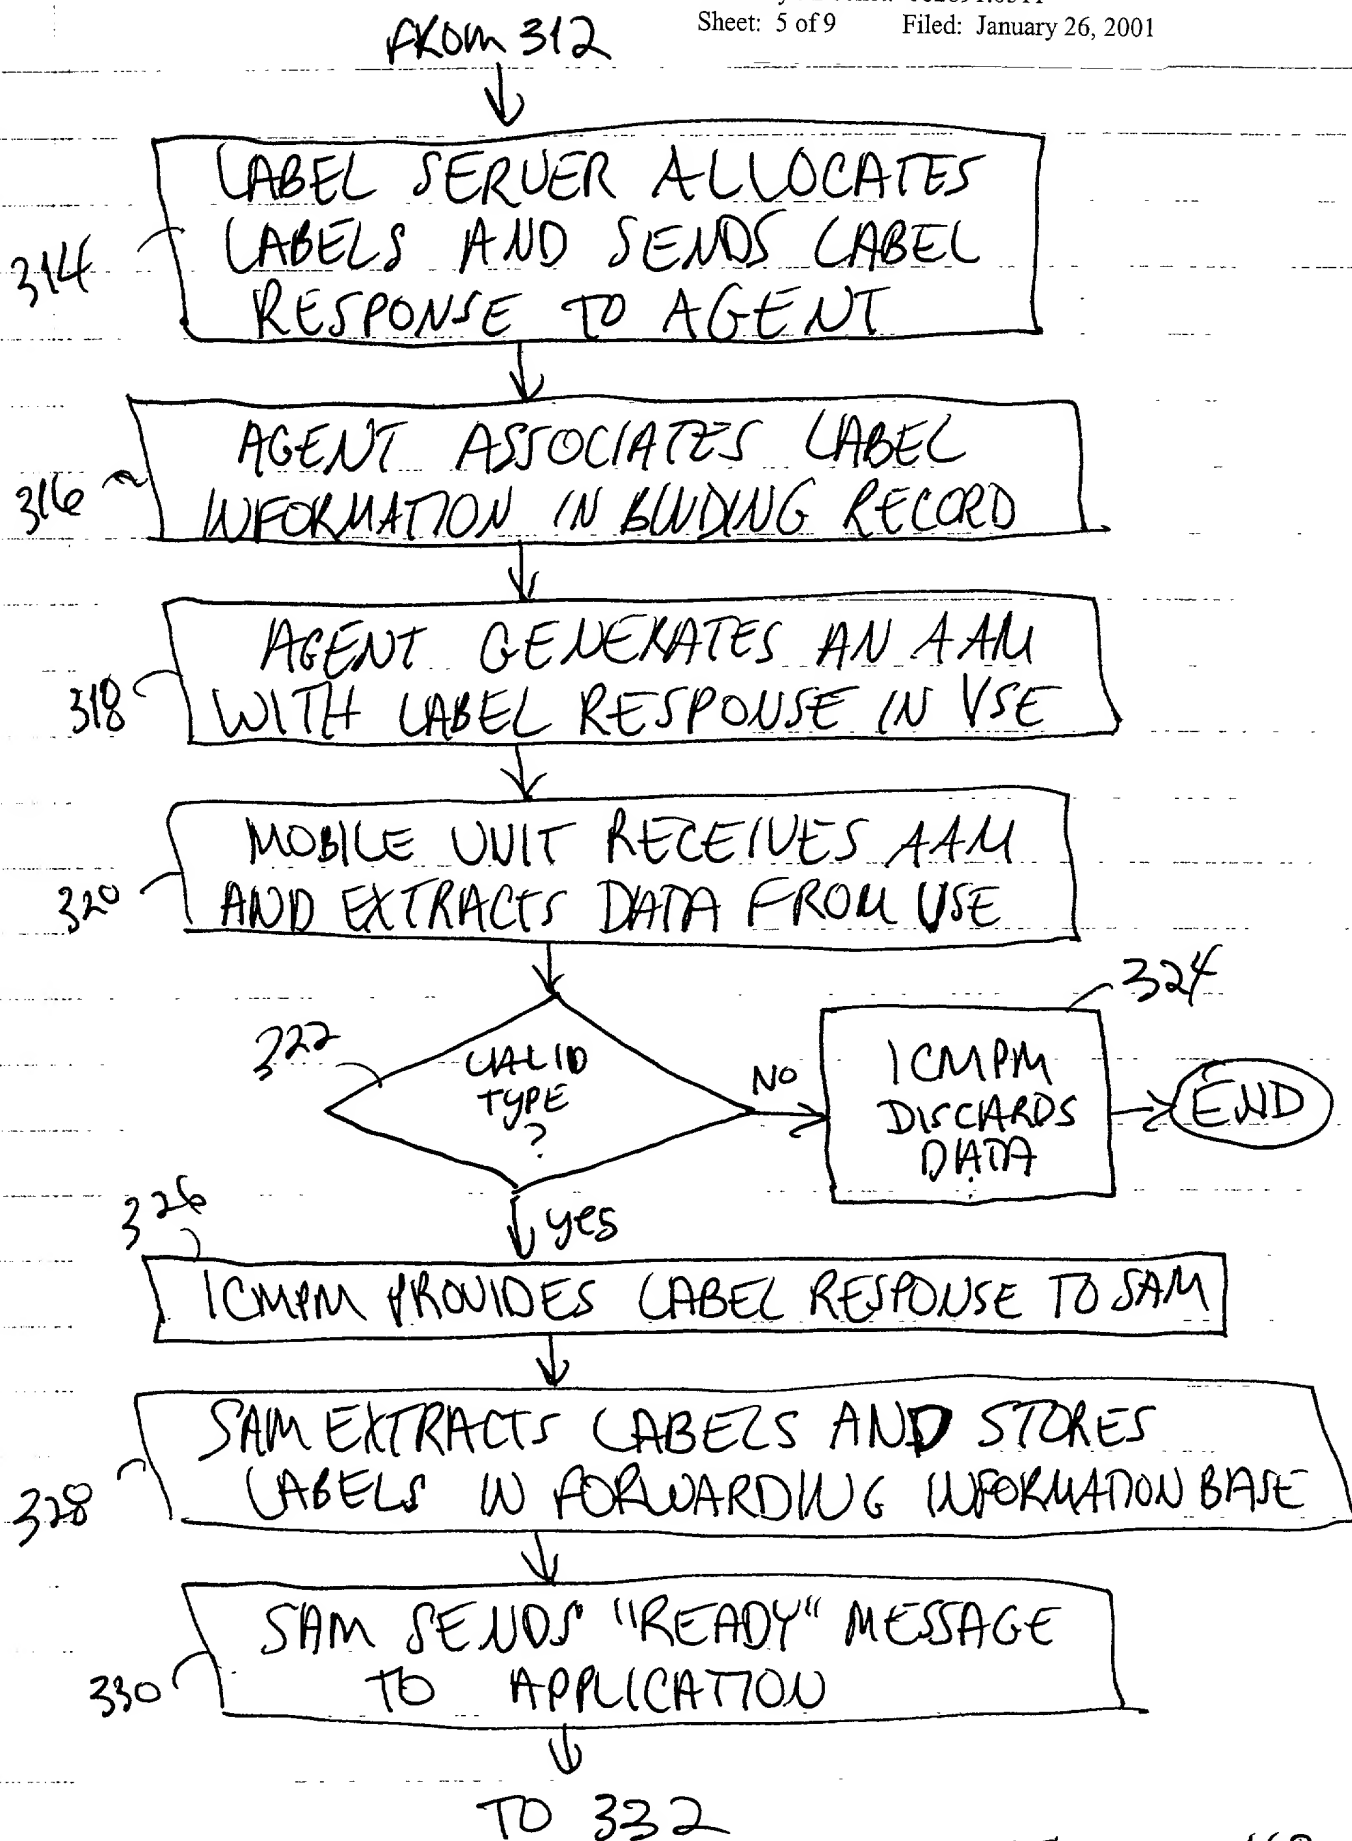 Sheet: 5 of 9 Filed: January 26, 2001
FROM 312
LABEL SERVER ALLOCATES
LABELS AND SENDS LABEL
RESPONSE TO AGENT
314
AGENT ASSOCIATES LABEL
INFORMATION IN BINDING RECORD
316
AGENT GENERATES AN AAM
WITH LABEL RESPONSE IN VSE
318
MOBILE UNIT RECEIVES AAM
AND EXTRACTS DATA FROM VSE
320
324
322
VALID
TYPE
?
NO
ICMPM
DISCARDS
DATA
END
yes
326
ICMPM PROVIDES LABEL RESPONSE TO SAM
SAM EXTRACTS LABELS AND STORES
LABELS IN FORWARDING INFORMATION BASE
328
SAM SENDS "READY" MESSAGE
TO APPLICATION
330
TO 332